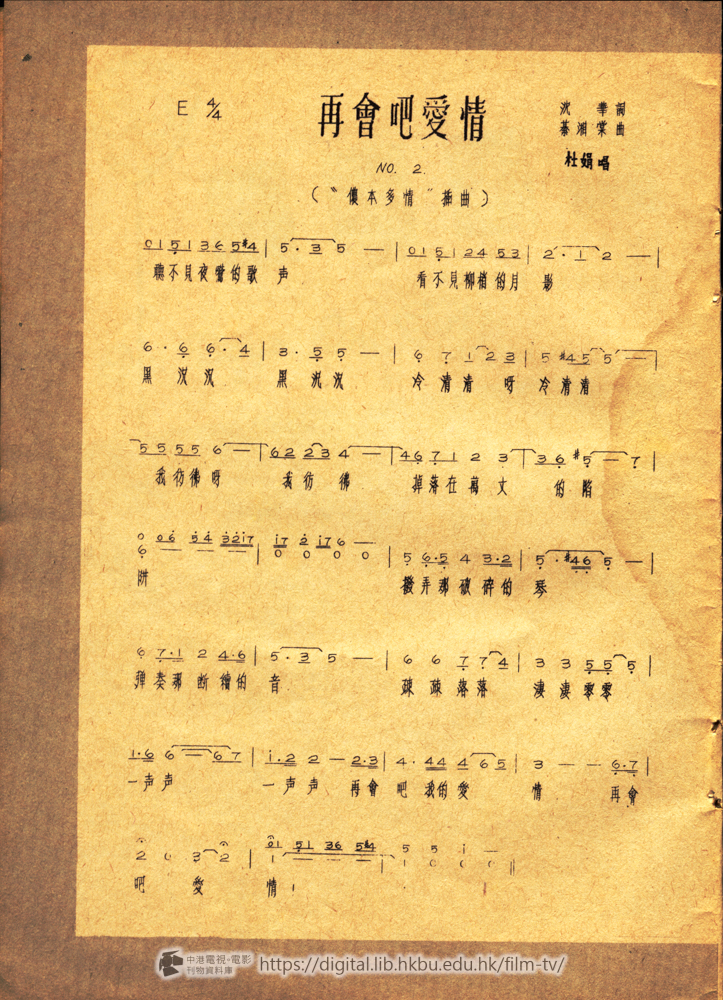 E 4/4
再會吧愛情
沈華詞
綦湘棠曲
杜娟唱
NO. 2.
(“傻本多情”插曲)
0 1 5 1 3 6 5 #4 | 5 · 3 5 — | 0 1 5 1 2 4 5 3 | 2 · 1 2 — |
聽不見夜鶯的歌 声 看不見柳梢的月 影
6 · 6 6 · 4 | 3 · 5 5 — | 6 7 1 2 3 | 5 #4 5 5 — |
黑沉沉 黑沉沉 冷清清 呀 冷清清
5 5 5 5 6 — | 6 2 2 3 4 — | 4 6 7 1 2 3 | 3 6 #5 — 7 |
我彷彿呀 我彷彿 掉落在萬丈 的陷
0 0 6 5 4 3 2 1 7 | 1 7 2 1 7 6 —
6 — — — | 0 0 0 0 | 5 6 · 5 4 3 · 2 | 5 · #4 6 5 — |
阱 撥弄那破碎的 琴
6 7 · 1 2 4 · 6 | 5 · 3 5 — | 6 6 7 7 4 | 3 3 5 5 5 |
彈奏那斷續的 音 疎疎落落 淒淒零零
1 · 6 6 — 6 7 | 1 · 2 2 — 2 · 3 | 4 · 4 4 4 6 5 | 3 — — 6 · 7 |
一声声 一声声 再會 吧 我的愛 情 再會
0 1 5 1 3 6 5 #4 5 5 1 —
2 0 3 2 | 1 — — — | 1 0 0 0 ||
吧 愛 情！
中港電視·電影
刊物資料庫
https://digital.lib.hkbu.edu.hk/film-tv/